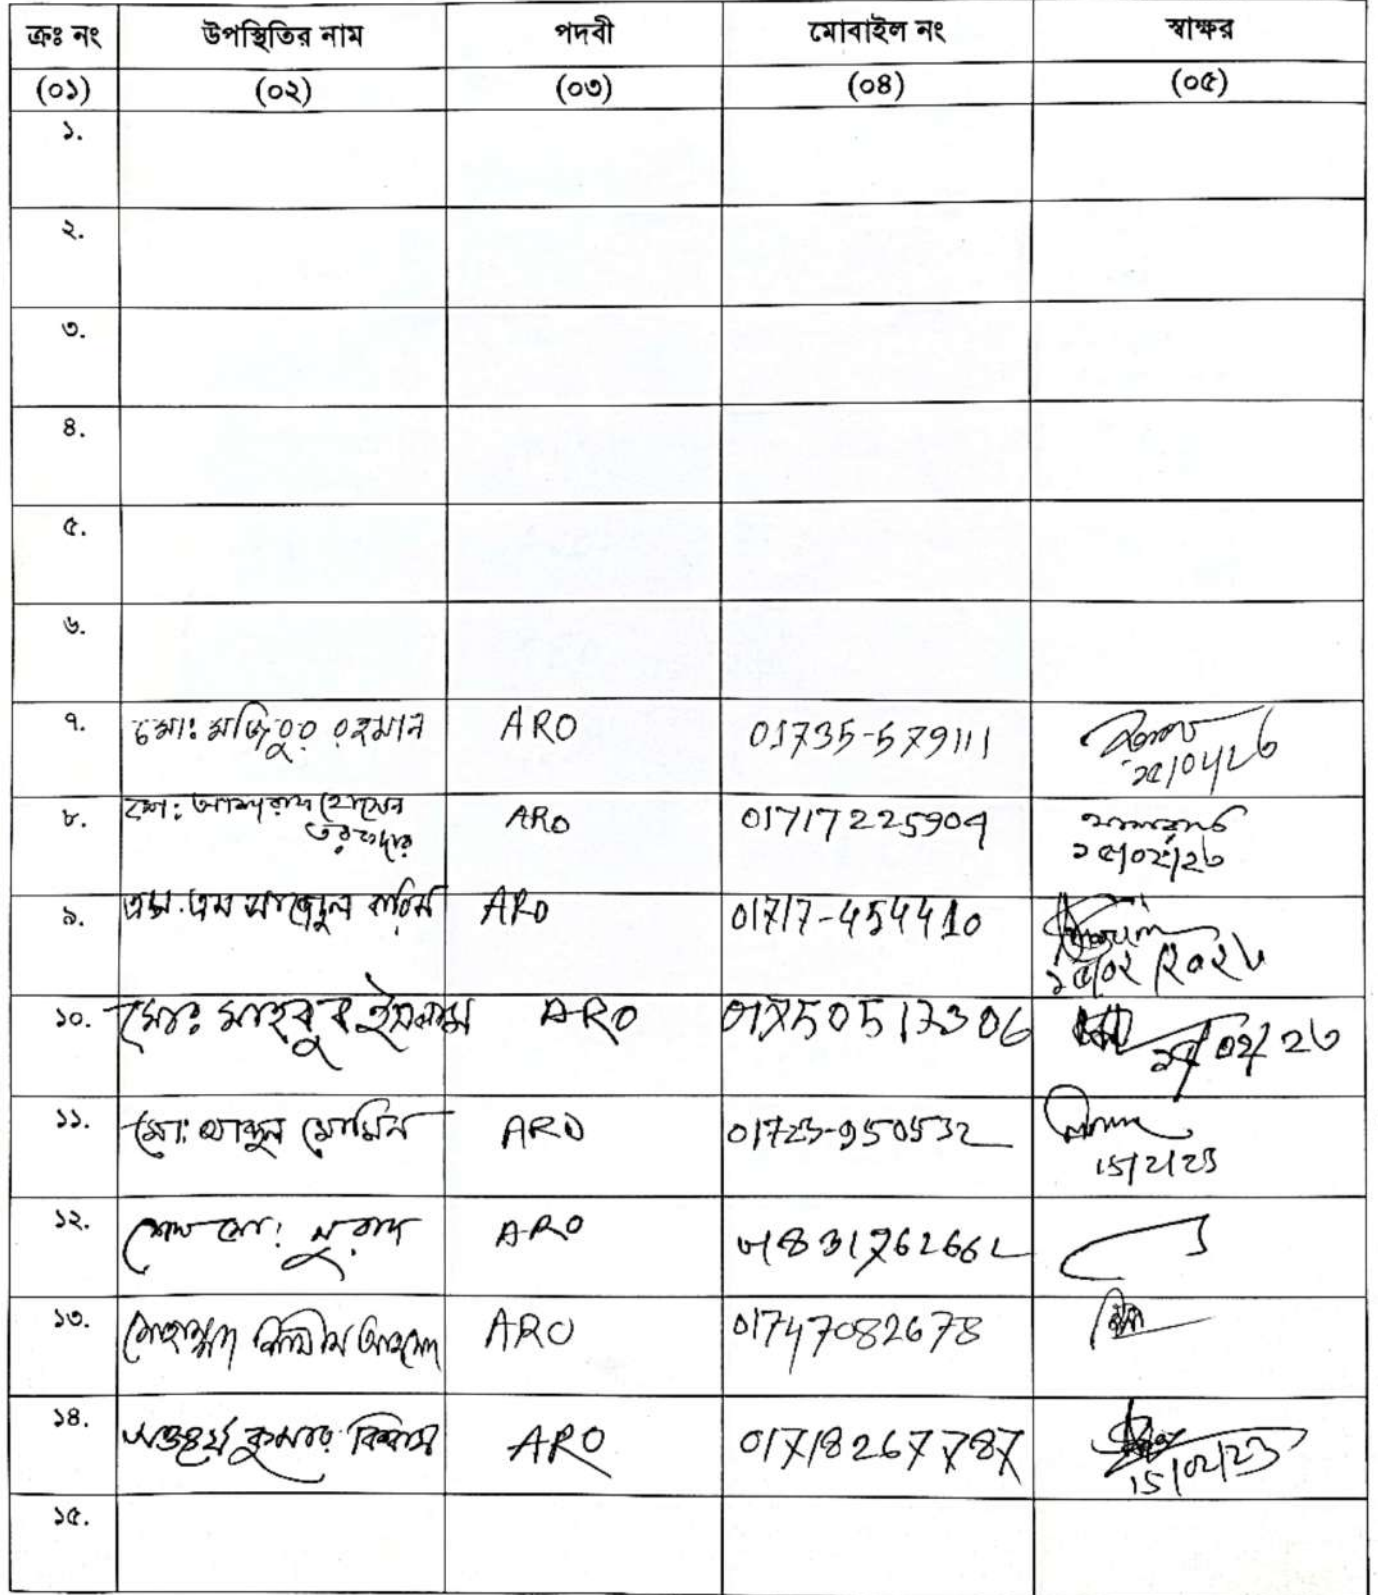 ক্রঃ নং উপস্থিতির নাম পদবী মোবাইল নং স্বাক্ষর
(০১) (০২) (০৩) (০৪) (০৫)
১.
২.
৩.
৪.
৫.
৬.
৭. মোঃ মজিবুর রহমান ARO 01735-579111
৮. হোসেন ARO 01717225909
তরফদার
১৫/০২/২৩
৯. এস.এম ARO 01717-454410
১৫/০২/২০২৩
১০. মোঃ মাহবুব ইসলাম ARO 01750517306 ১৫/০২/২৩
১১. মোঃ আব্দুল মোমিন ARO 01723-950532
15/2/23
১২. শেখ মোঃ মুরাদ ARO 01831762662
১৩. মোহাম্মদ আহমেদ ARO 01747082678
১৪. কুমার বিশ্বাস ARO 01718267787
15/02/23
১৫.